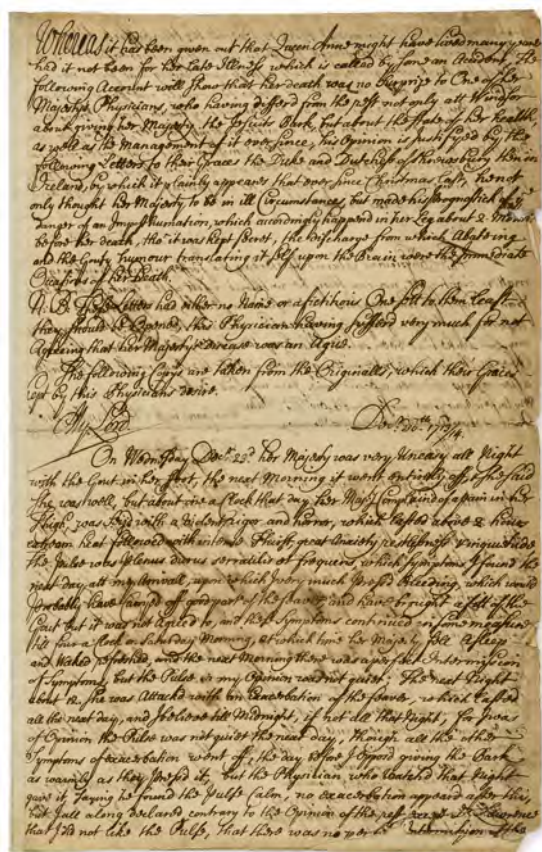 Whereas it has been given out that Queen Anne might have lived many years
had it not been for her late Illness which is called by some an Accident, The
following Account will show that her death was no Surprize to One of her
Majestys Physicians, who having differd from the rest not only att Windsor
about giving her Majesty the Jesuits Bark, but about the state of her health,
as well as the Management of it ever since, his Opinion is Justifyed by the
following Letters to their Graces the Duke and Dutchess of Shrewsbury then in
Ireland, by which it plainly appears that ever since Christmas Last, he not
only thought her Majesty to be in ill Circumstances, but made his Prognostick of
danger of an which accordingly happend in her Leg about 2
before her death, tho' it was kept Secret, the discharge from which Abateing
and the Gouty humour translating it self upon the Brain were the immediate
Occasions of her Death
N. B. These Letters had either no Name or a fictitious One sett to them least
they should be Opened, this Physician having sufferd very much for not
Agreeing that her Majestys disease was an Ague.
The following Copys are taken from the Originalls, which their Graces
kept by this Physicians desire.
My Lord 1713/4
On Wednesday Decr. 23d. her Majesty was very Uneasy all Night
with the Gout in her foot, the next Morning it went entirely off, & She said
She was well, but about one a Clock that day, her Majty. Complaind of a pain in her
Thigh, was Seizd with a Violent rigor and horror, which lasted above 2 hours
extream heat followed with intense thirst, great Anxiety restlessness & inquietude
the Pulse was plenus durus et frequens, which Symptoms I found the
next day, att my arrivall, upon which I very much press'd Bleeding, which would
probably have carryed off good part of the feaver, and have brought a fitt of the
Gout but it was not Agreed to, and these Symptoms continued in some measure
till four a Clock on Saturday Morning, at which time her Majesty fell Asleep
and Waked refreshed, and the next Morning there was a perfect Intermission
of Symptoms, but the Pulse in my Opinion was not quiet; The next Night
about 12. she was Attackd with an Exacerbation of the feaver, which lasted
all the next day, and I believe till Midnight, if not all that Night, for I was
of Opinion the Pulse was not quiet the next day, though all the other
Symptoms of exacerbation went off, the day before I opposd giving the Bark
as warmly as they press'd it, but the Physician, who Watchd that Night
gave it, saying he found the Pulse Calm, no exacerbation appeard after this,
but I all along declared contrary to the Opinion of the rest except Dr. Lawrence
that I did not like the Pulse, that there was no of the